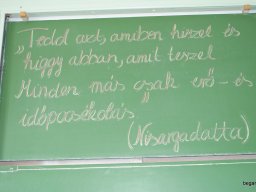 „Tedd azt, amiben hiszel és
higgy abban, amit teszel
Minden más csak erő- és
időpocsékolás"
(Nisargadatta)
began